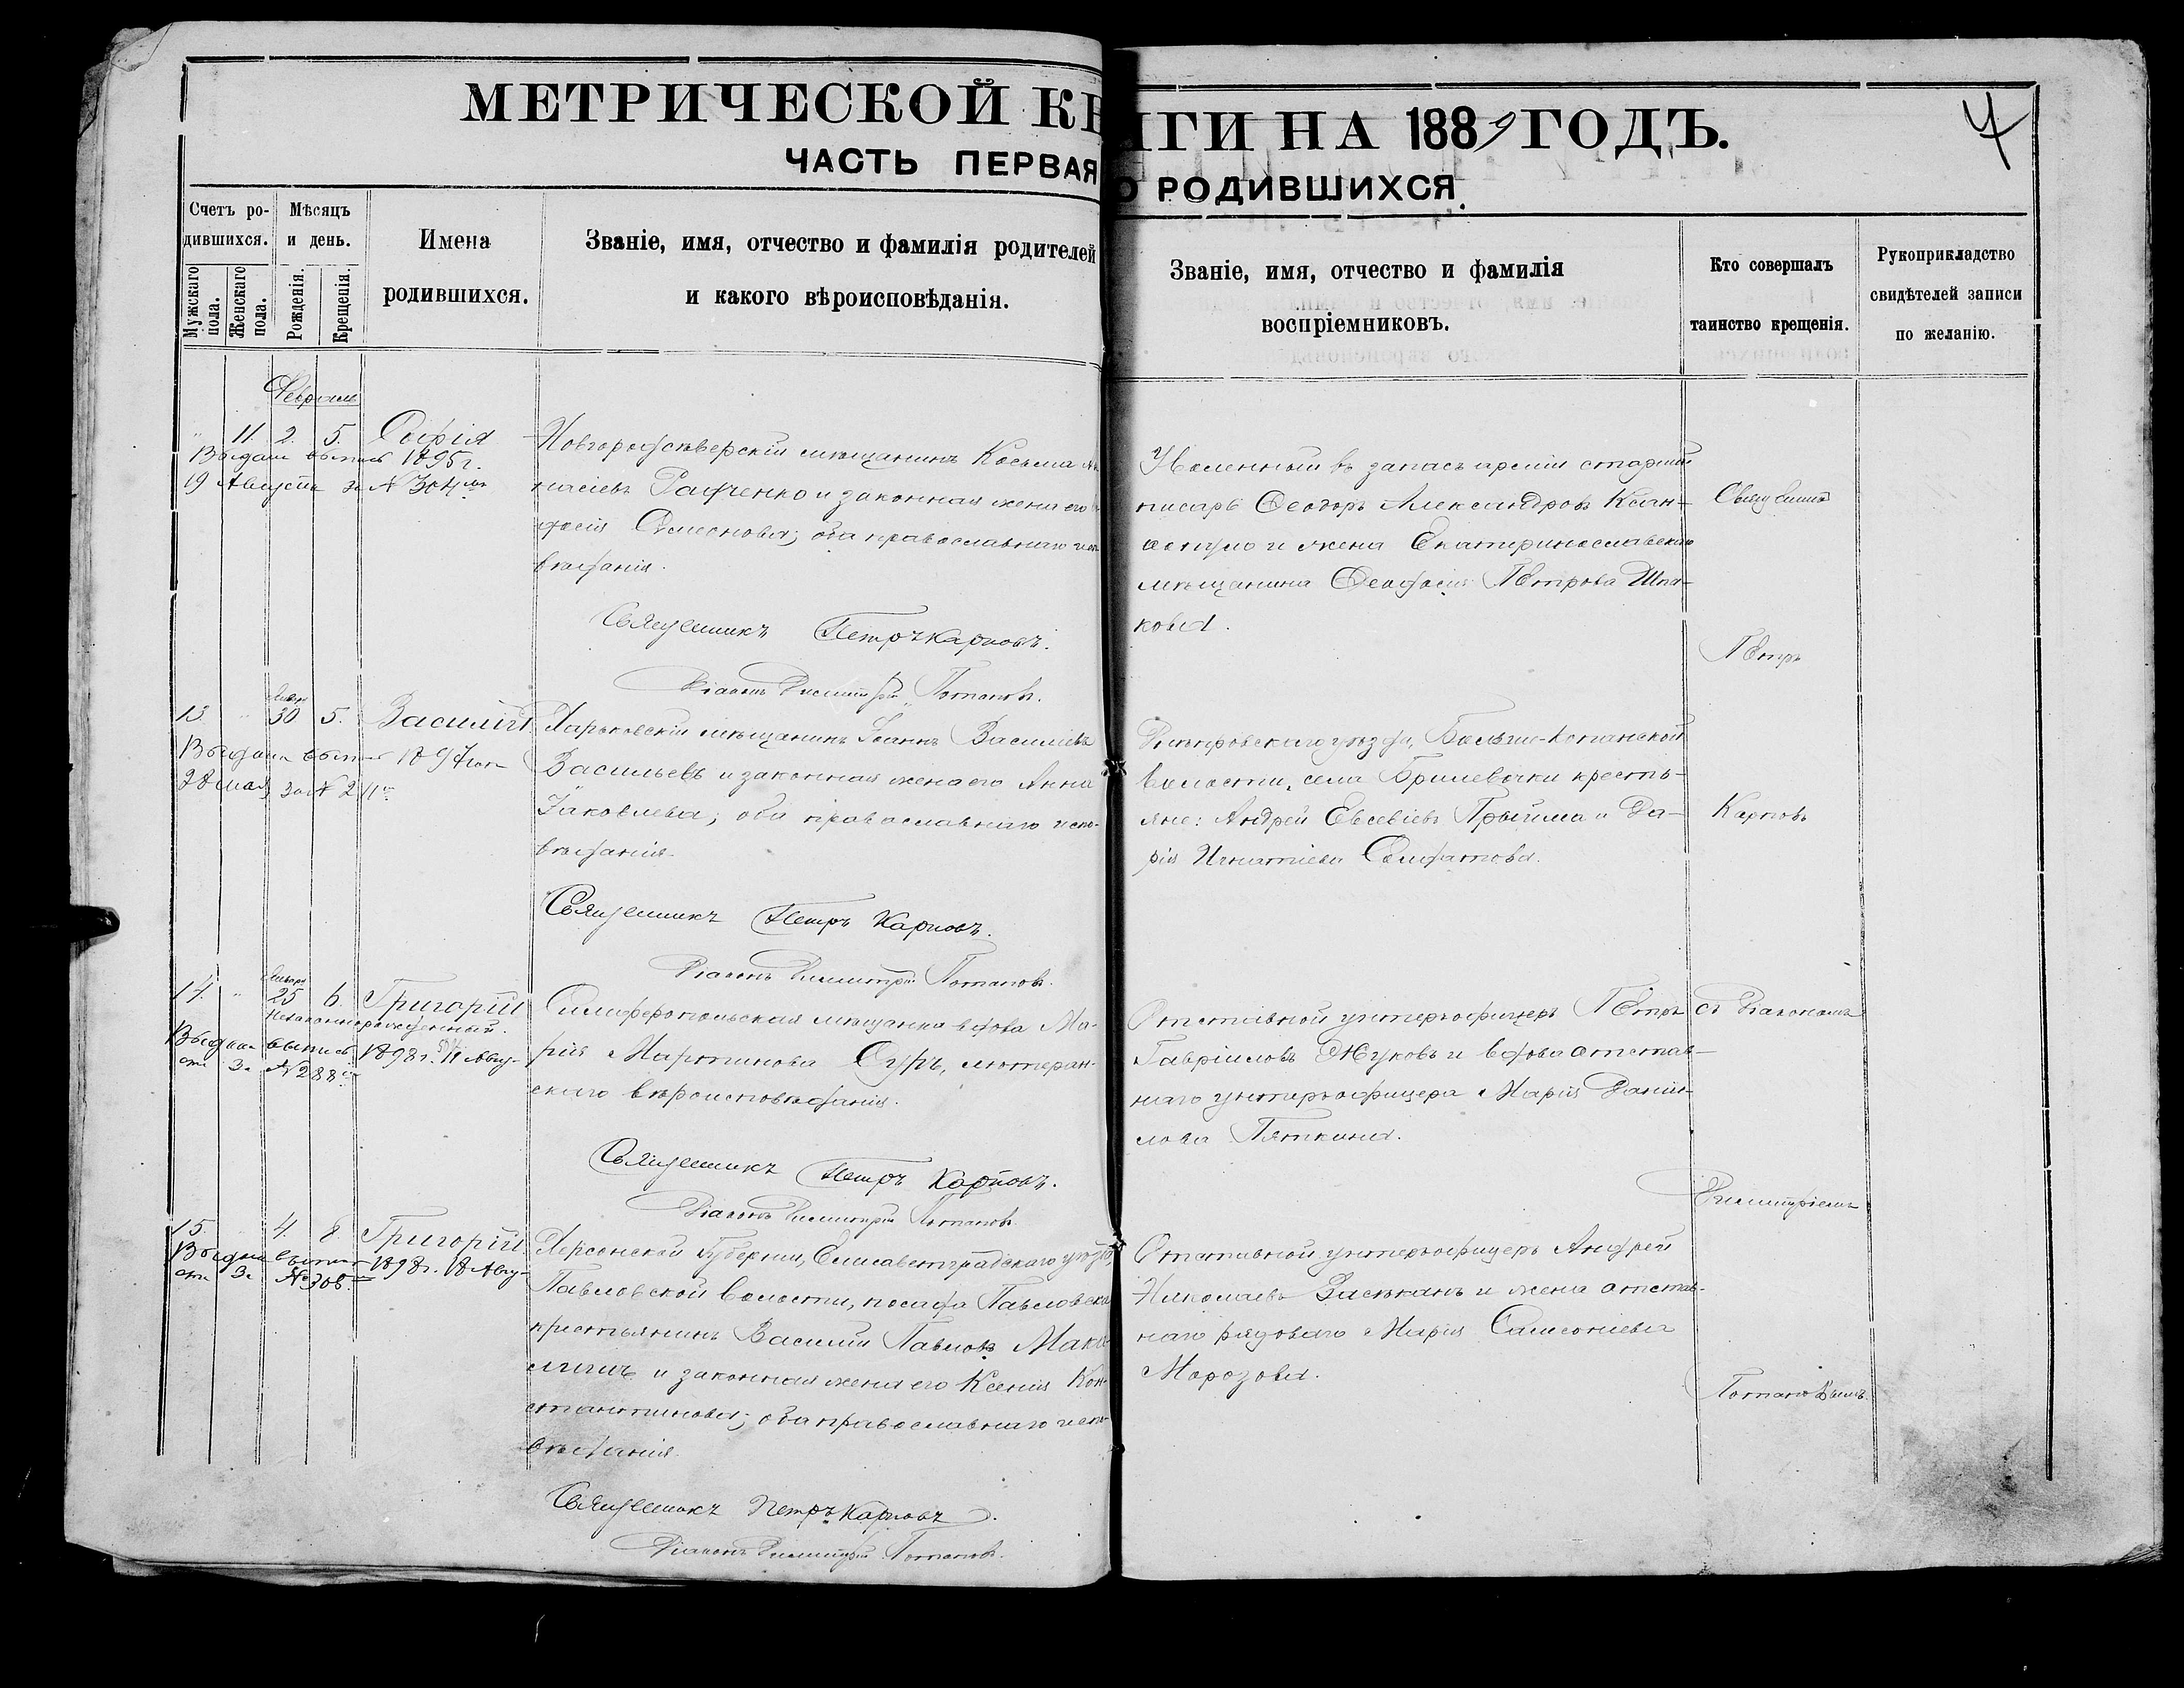 МЕТРИЧЕСКОЙ КНИГИ НА 1889 ГОДЪ.
4
ЧАСТЬ ПЕРВАЯ О РОДИВШИХСЯ.
Счетъ родившихся.
Мужскаго пола.
Женскаго пола.
Мѣсяцъ и день.
Рожденія.
Крещенія.
Имена
родившихся.
Званіе, имя, отчество и фамилія родителей
и какого вѣроисповѣданія.
Званіе, имя, отчество и фамилія
воспріемниковъ.
Кто совершалъ
таинство крещенія.
Рукоприкладство
свидѣтелей записи
по желанію.
Февраль
11. 2. 5. Софія
Выдана выпись 1895 г.
19 Августа за № 304
Новгородсѣверскій мѣщанинъ Косьма
Радченко и законная жена его
Симеонова; оба православнаго испо-
вѣданія.
Священникъ Петръ Карповъ.
Діаконъ Димитрій Потаповъ.
Уволенный въ запасъ арміи старшій
писарь Ѳеодоръ Александровъ Ксан-
и жена Екатеринославскаго
мѣщанина Ѳеодосія Петрова
кова.
Священникъ
Петръ
13. Января 30 5. Василій
Выдана выпись 1897 года
28 мая за № 211
Харьковскій мѣщанинъ Іоаннъ Василіевъ
Васильевъ и законная жена его Анна
Іаковлева; оба православнаго испо-
вѣданія.
Священникъ Петръ Карповъ.
Діаконъ Димитрій Потаповъ.
Днѣпровскаго уѣзда, Больше-Копанской
волости, села Брилевочки кресть-
яне: Андрей Евсевіевъ Прыйма и Да-
рія Игнатіева
Карповъ
14. Января 25 6. Григорій
Незаконнорожденный.
Выдана выпись 1898 г. 11 Авгу-
ста За № 288
Симферопольская мѣщанка вдова Ма-
рія Мартинова лютеран-
скаго вѣроисповѣданія.
Священникъ Петръ Карповъ.
Діаконъ Димитрій Потаповъ.
Отставной унтеръ-офицеръ Петръ
Гавріиловъ Жуковъ и вдова отстав-
наго унтеръ-офицера Марія Даніи-
лова Пяткина.
съ Діакономъ
Димитріемъ
15. 4. 8. Григорій
Выдана выпись 1898 г. 18 Авгу-
ста За № 308.
Херсонской Губерніи, Елисаветградскаго уѣзда,
Павловской волости, посада Павловска
крестьянинъ Василій Павловъ
и законная жена его Ксенія Кон-
стантинова; оба православнаго испо-
вѣданія.
Священникъ Петръ Карповъ.
Діаконъ Димитрій Потаповъ.
Отставной унтеръ-офицеръ Андрей
Николаевъ и жена отстав-
наго рядоваго Марія Самсоніева
Морозова.
Потаповымъ.